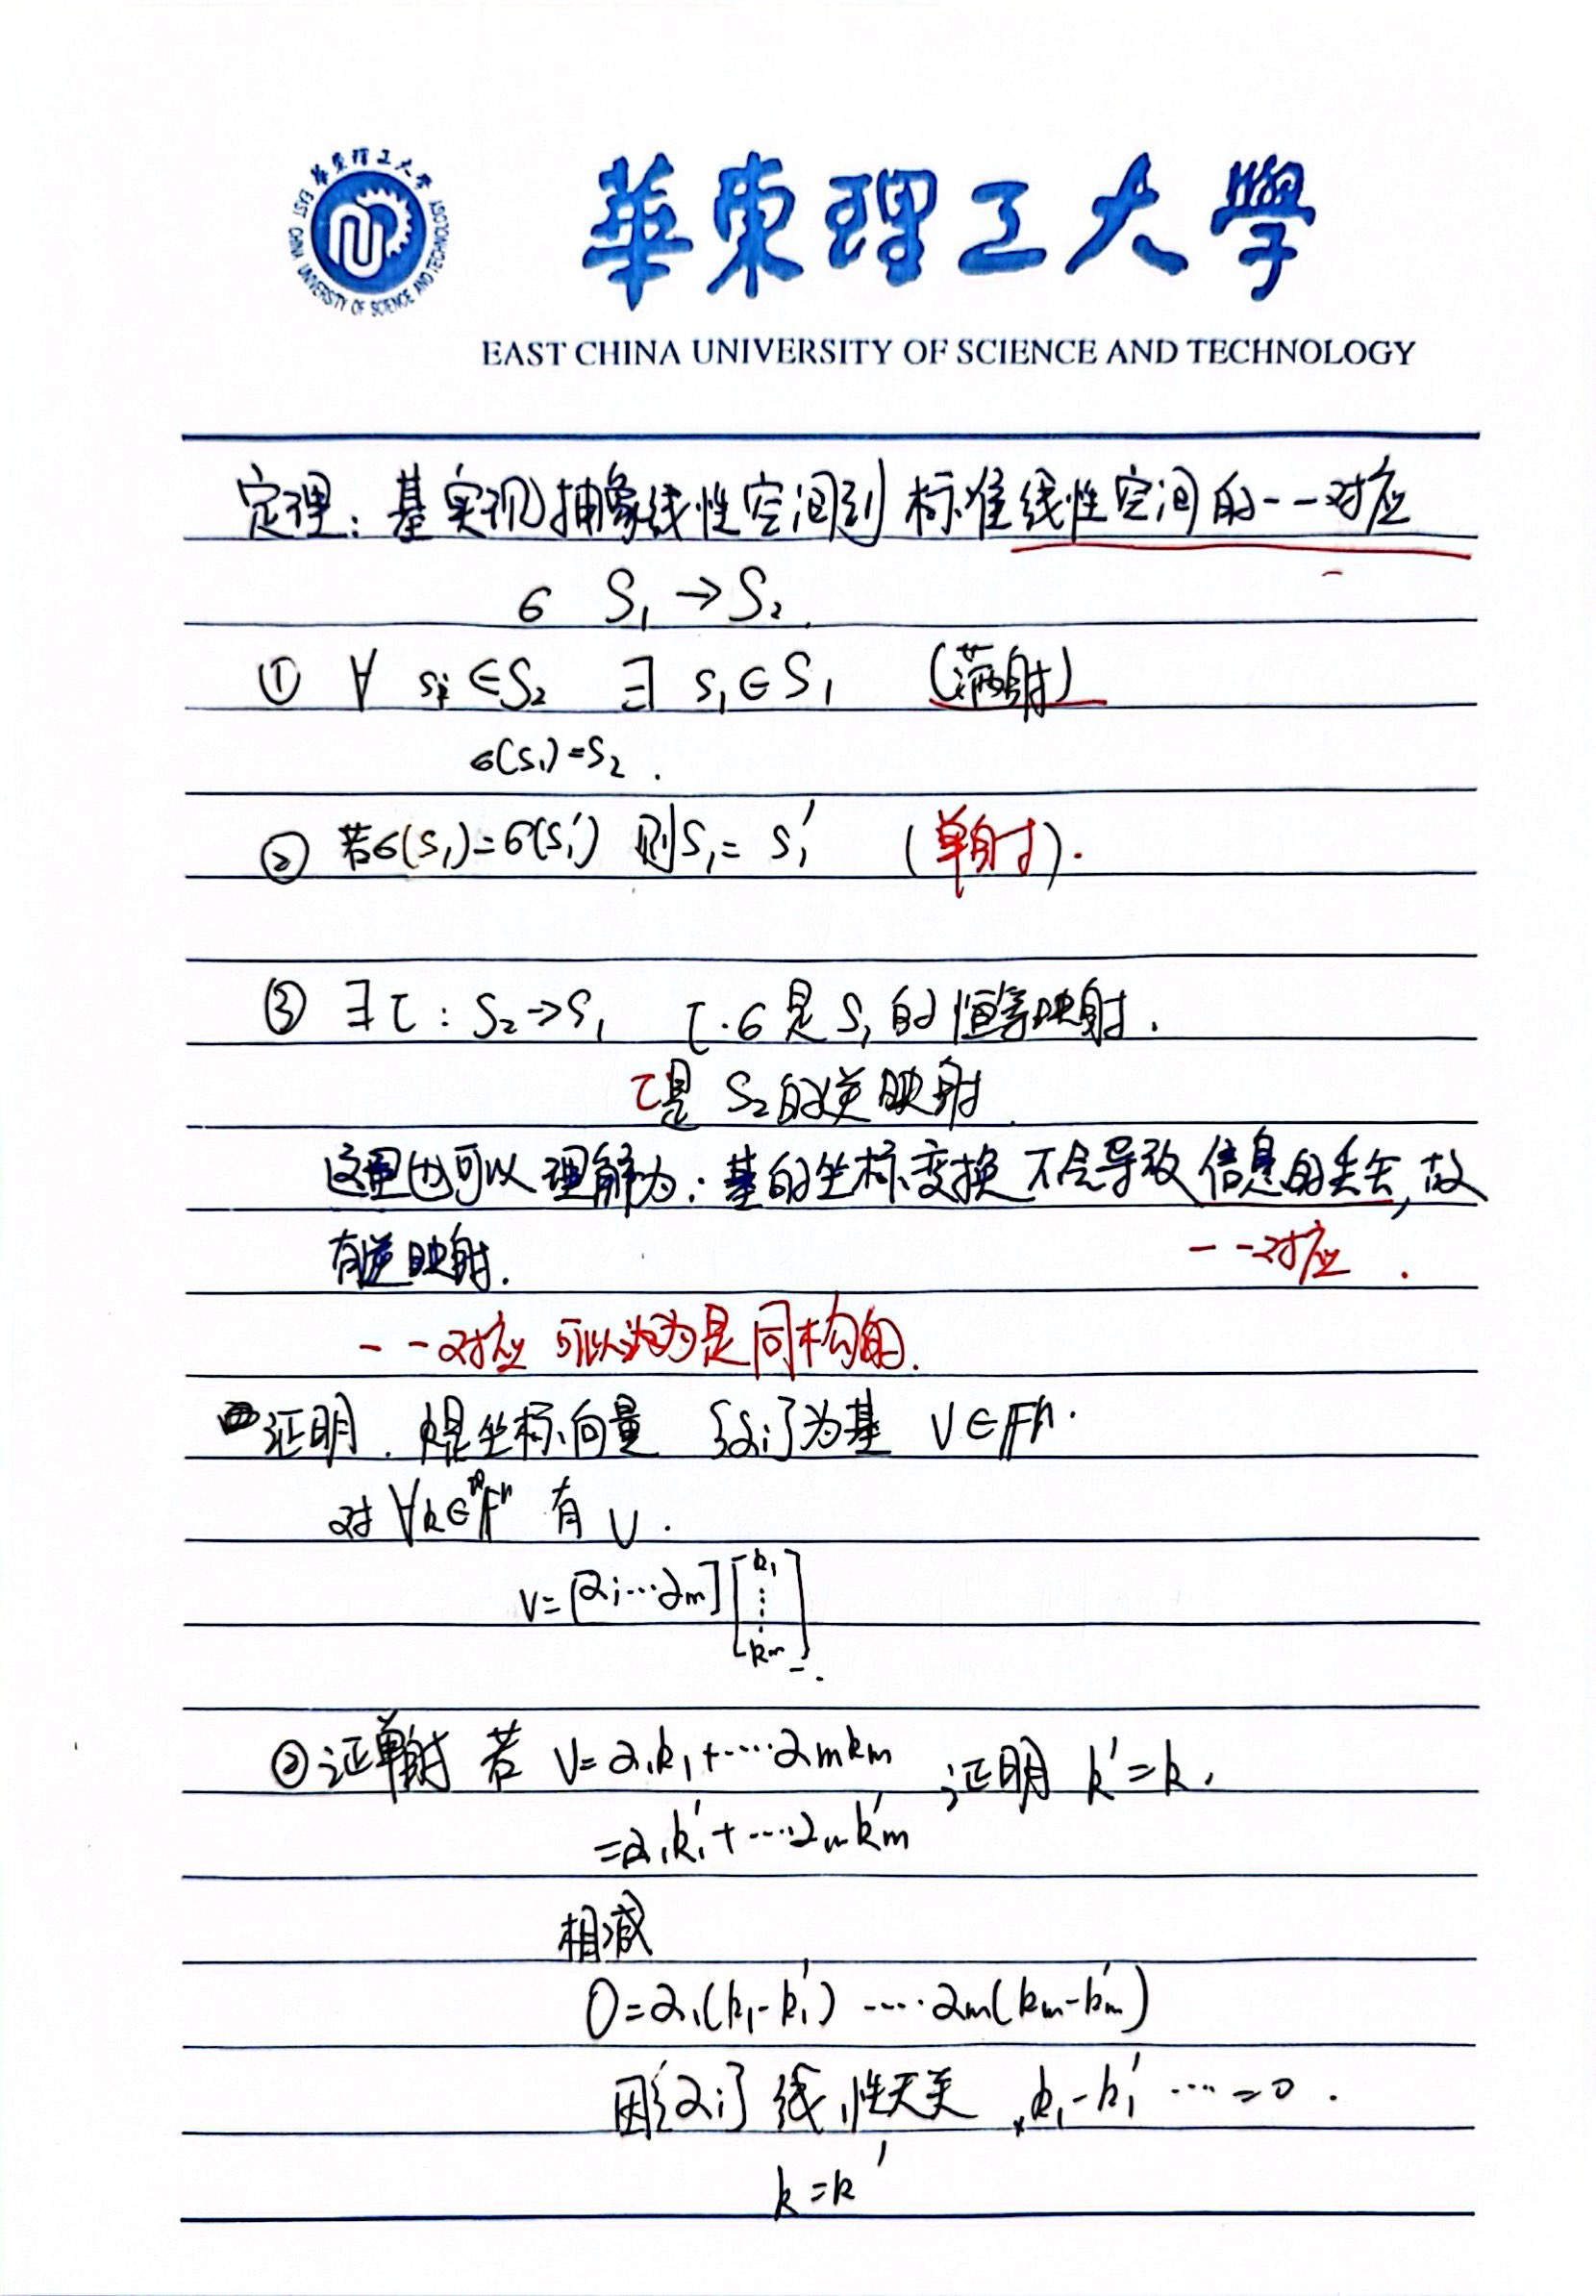 華東理工大學
EAST CHINA UNIVERSITY OF SCIENCE AND TECHNOLOGY
華東理工大學
EAST CHINA UNIVERSITY OF SCIENCE AND TECHNOLOGY
定理：基实现抽象线性空间到标准线性空间的一一对应
σ S₁→S₂
① ∀ s₂∈S₂ ∃ s₁∈S₁ (满射)
σ(s₁)=s₂.
② 若σ(s₁)=σ(s₁′) 则s₁=s₁′ (单射).
③ ∃τ: S₂→S₁ τ·σ是S₁的恒等映射.
τ是 S₂的逆映射
这里也可以理解为：基的坐标变换不会导致信息的丢失,故
有逆映射.
一一对应.
一一对应 可以认为是同构的.
证明. k是坐标向量 {αᵢ}为基 V∈Fⁿ.
对∀k∈Fⁿ 有 v.
v=[αᵢ…αₘ][k₁ ⋮ kₘ].
②证单射 若 v=α₁k₁+……αₘkₘ 证明 k′=k.
=α₁k₁′+……αₘkₘ′
相减
0=α₁(k₁-k₁′) …… αₘ(kₘ-kₘ′)
因{αᵢ} 线性无关 k₁-k₁′ …=0.
k=k′